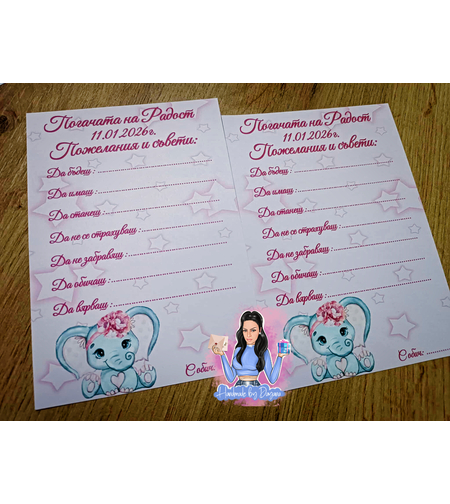 Погачата на Радост
11.01.2026г.
Пожелания и съвети:
Да бъдеш :
Да имаш :
Да станеш :
Да не се страхуваш :
Да не забравяш :
Да обичаш :
Да вярваш :
С обич:
Погачата на Радост
11.01.2026г.
Пожелания и съвети:
Да бъдеш :
Да имаш :
Да станеш :
Да не се страхуваш :
Да не забравяш :
Да обичаш :
Да вярваш :
С обич:
Handmade by Dayana